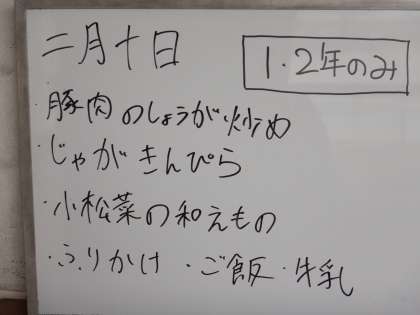 二月十日
1・2年のみ
・豚肉のしょうが炒め
・じゃがきんぴら
・小松菜の和えもの
・ふりかけ ・ご飯 ・牛乳